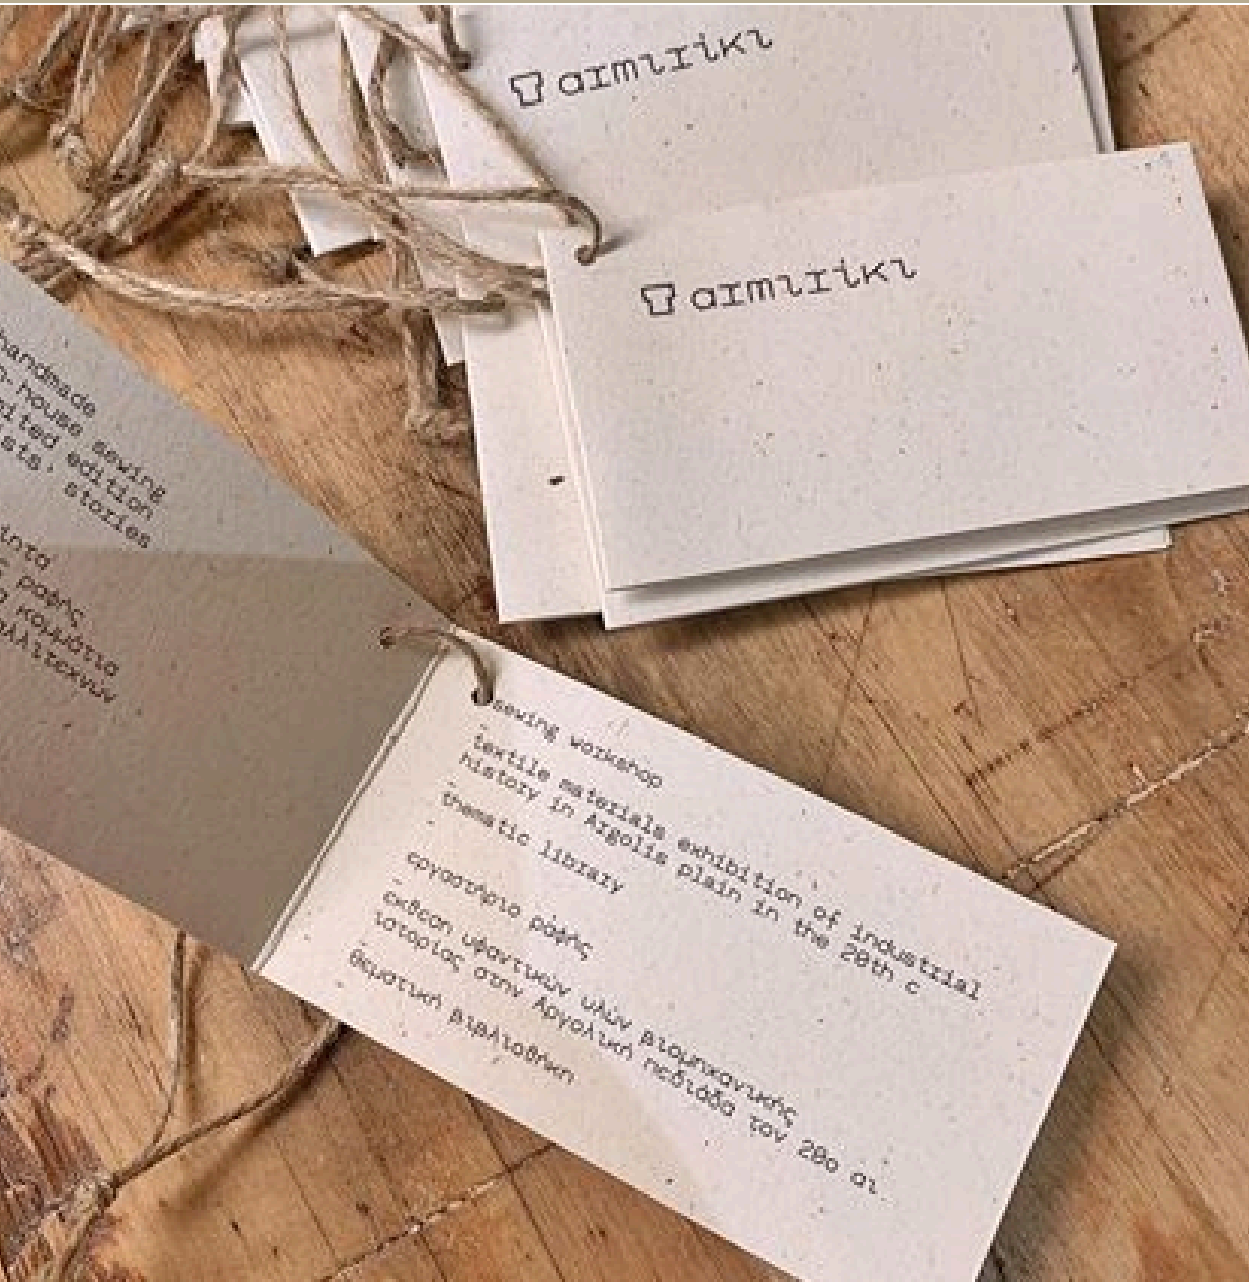 armιrίκι
armιrίκι
handmade
house sewing
edition
stories
ραφής
κομμάτια
sewing workshop
-
textile materials exhibition of industrial
history in Argolis plain in the 20th c
-
thematic library
-
εργαστήριο ράφής
-
έκθεση υφαντικών υλών βιομηχανικής
ιστορίας στην Αργολική πεδιάδα τον 20ο αι.
-
θεματική βιβλιοθήκη